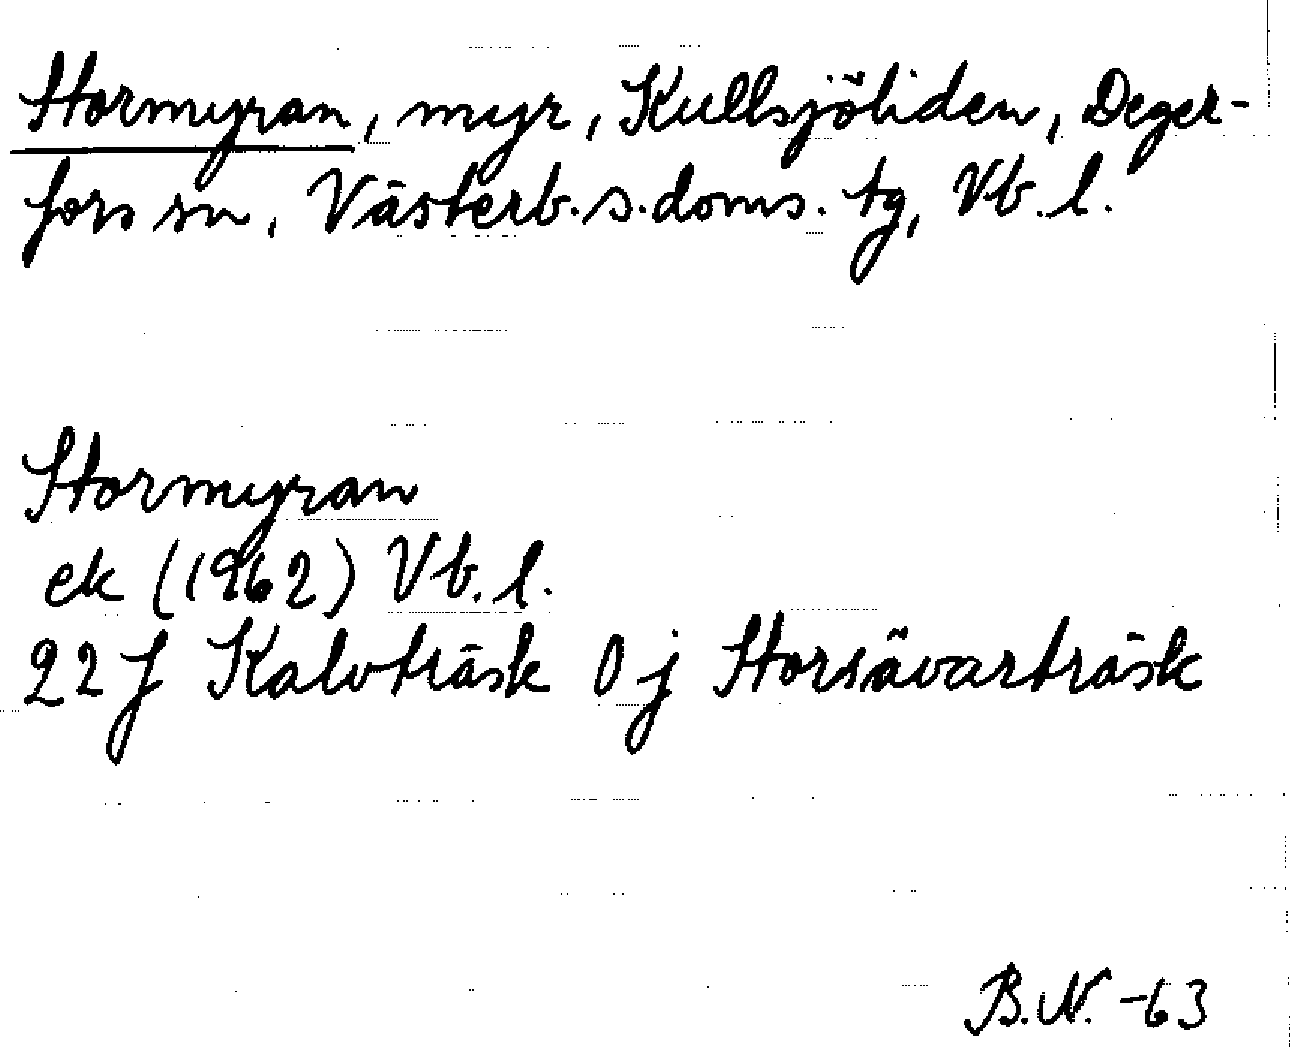 Stormyran, myr, Kullsjöliden, Deger-
fors sn, Västerb. s. doms. tg, Vb. l.
Stormyran
ek (1962) Vb. l.
22 J Kalvträsk 0 j Storsävarträsk
B.N. -63